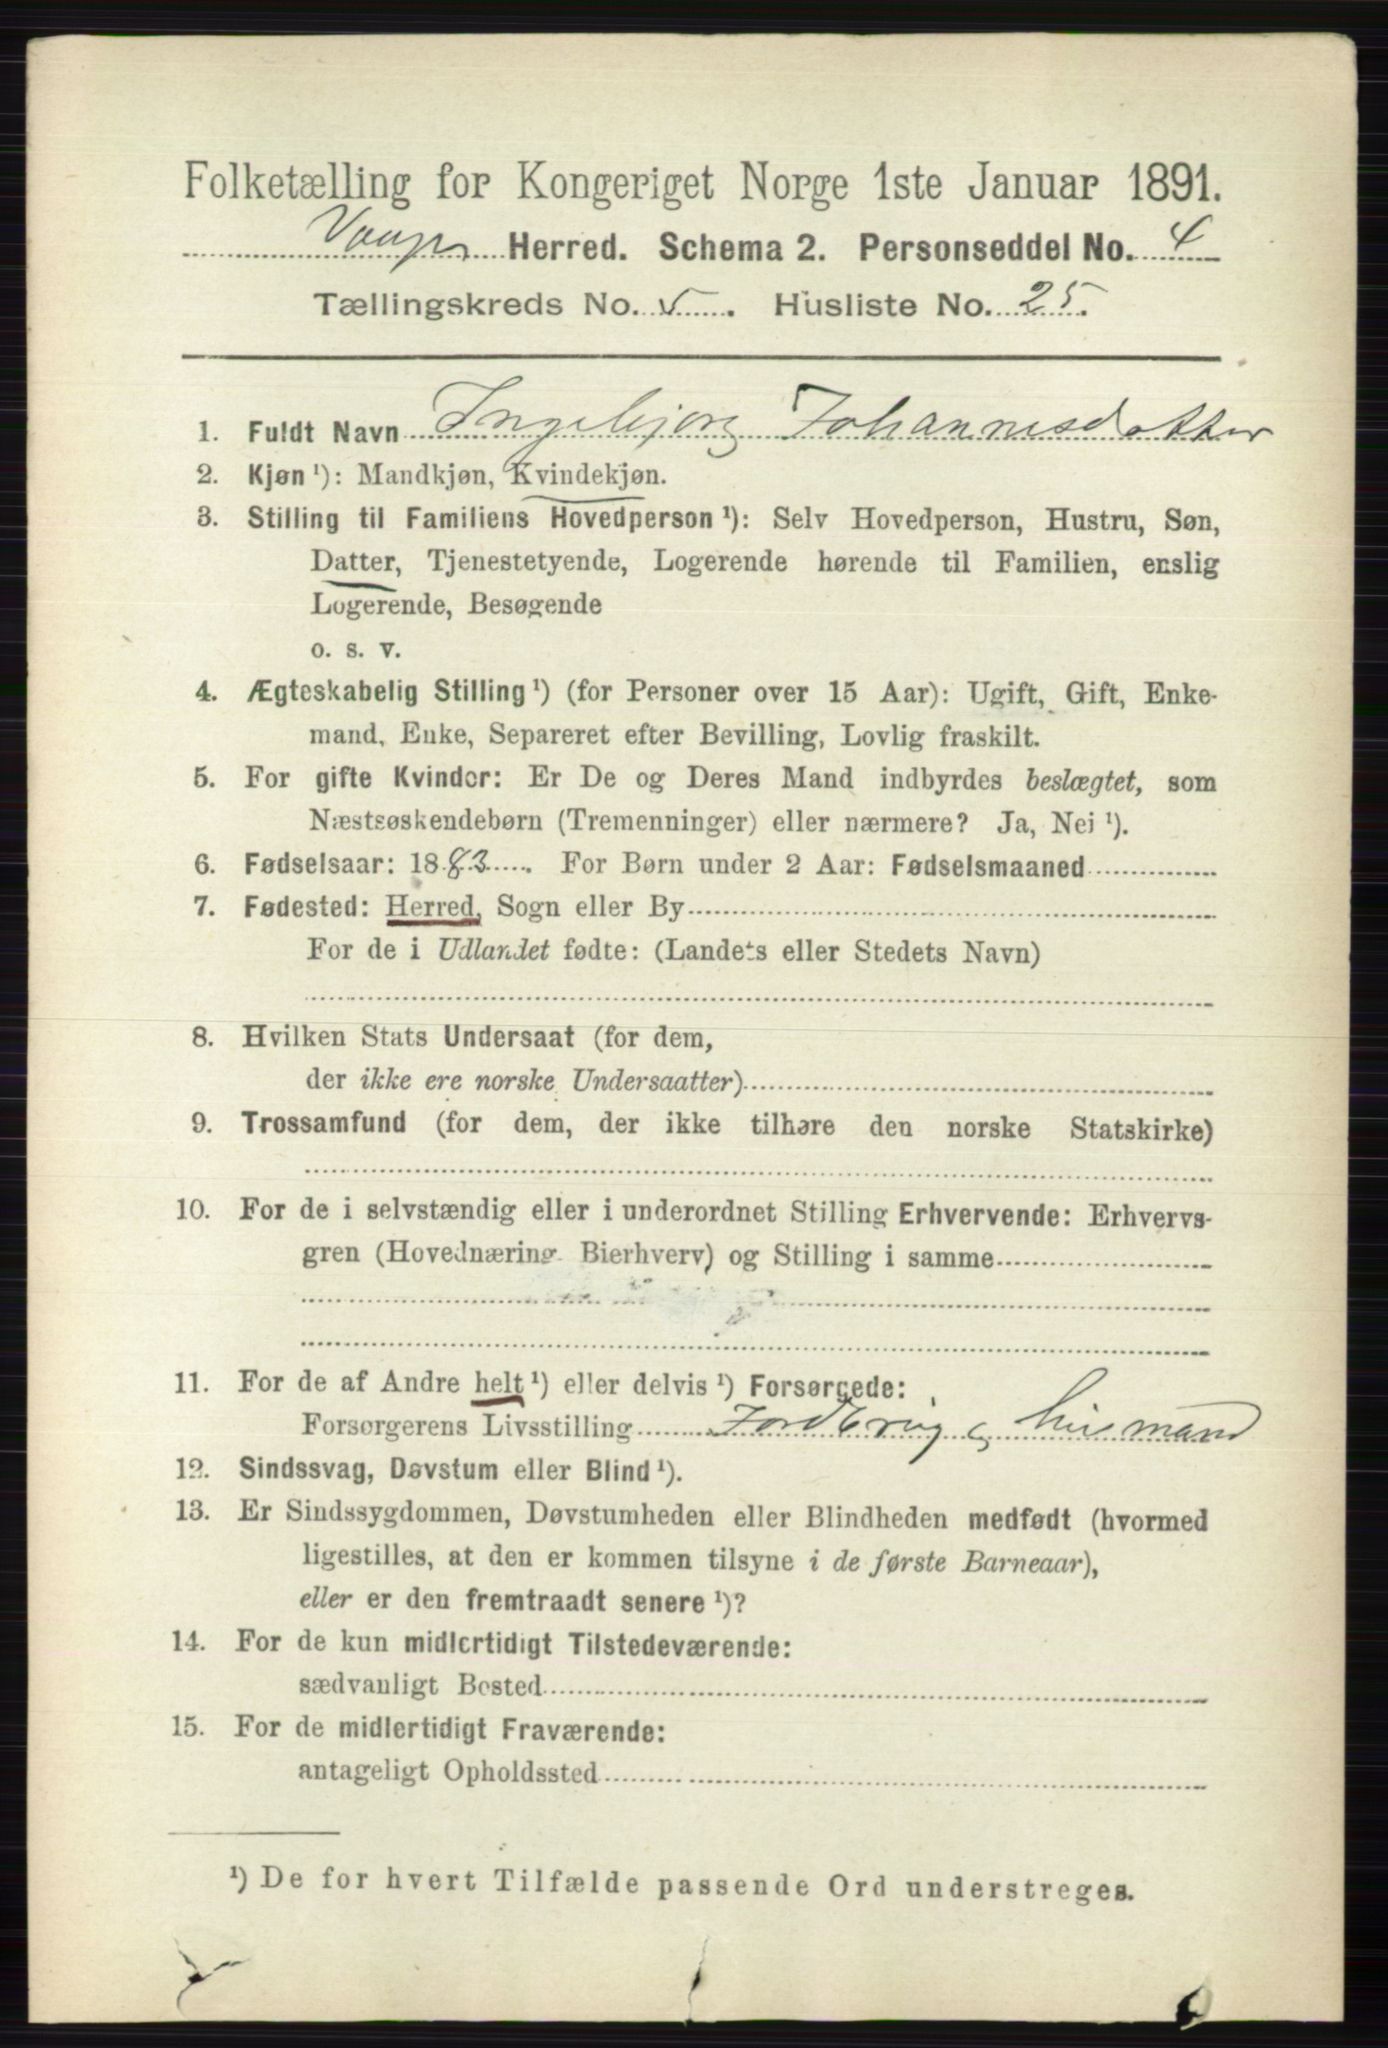 Folketælling for Kongeriget Norge 1ste Januar 1891.
Herred. Schema 2. Personseddel No. 4
Tællingskreds No. 5. Husliste No. 25.
1. Fuldt Navn Ingebjorg Johannesdatter
2. Kjøn ¹): Mandkjøn, Kvindekjøn.
3. Stilling til Familiens Hovedperson ¹): Selv Hovedperson, Hustru, Søn,
Datter, Tjenestetyende, Logerende hørende til Familien, enslig
Logerende, Besøgende
o. s. v.
4. Ægteskabelig Stilling ¹) (for Personer over 15 Aar): Ugift, Gift, Enke-
mand, Enke, Separeret efter Bevilling, Lovlig fraskilt.
5. For gifte Kvinder: Er De og Deres Mand indbyrdes beslægtet, som
Næstsøskendebørn (Tremenninger) eller nærmere? Ja, Nei ¹).
6. Fødselsaar: 1883. For Børn under 2 Aar: Fødselsmaaned
7. Fødested: Herred, Sogn eller By
For de i Udlandet fødte: (Landets eller Stedets Navn)
8. Hvilken Stats Undersaat (for dem,
der ikke ere norske Undersaatter)
9. Trossamfund (for dem, der ikke tilhøre den norske Statskirke)
10. For de i selvstændig eller i underordnet Stilling Erhvervende: Erhvervs-
gren (Hovednæring, Bierhverv) og Stilling i samme
11. For de af Andre helt ¹) eller delvis ¹) Forsørgede:
Forsørgerens Livsstilling Jordbrug husmand
12. Sindssvag, Døvstum eller Blind ¹).
13. Er Sindssygdommen, Døvstumheden eller Blindheden medfødt (hvormed
ligestilles, at den er kommen tilsyne i de første Barneaar),
eller er den fremtraadt senere ¹)?
14. For de kun midlertidigt Tilstedeværende:
sædvanligt Bosted
15. For de midlertidigt Fraværende:
antageligt Opholdssted
¹) De for hvert Tilfælde passende Ord understreges.